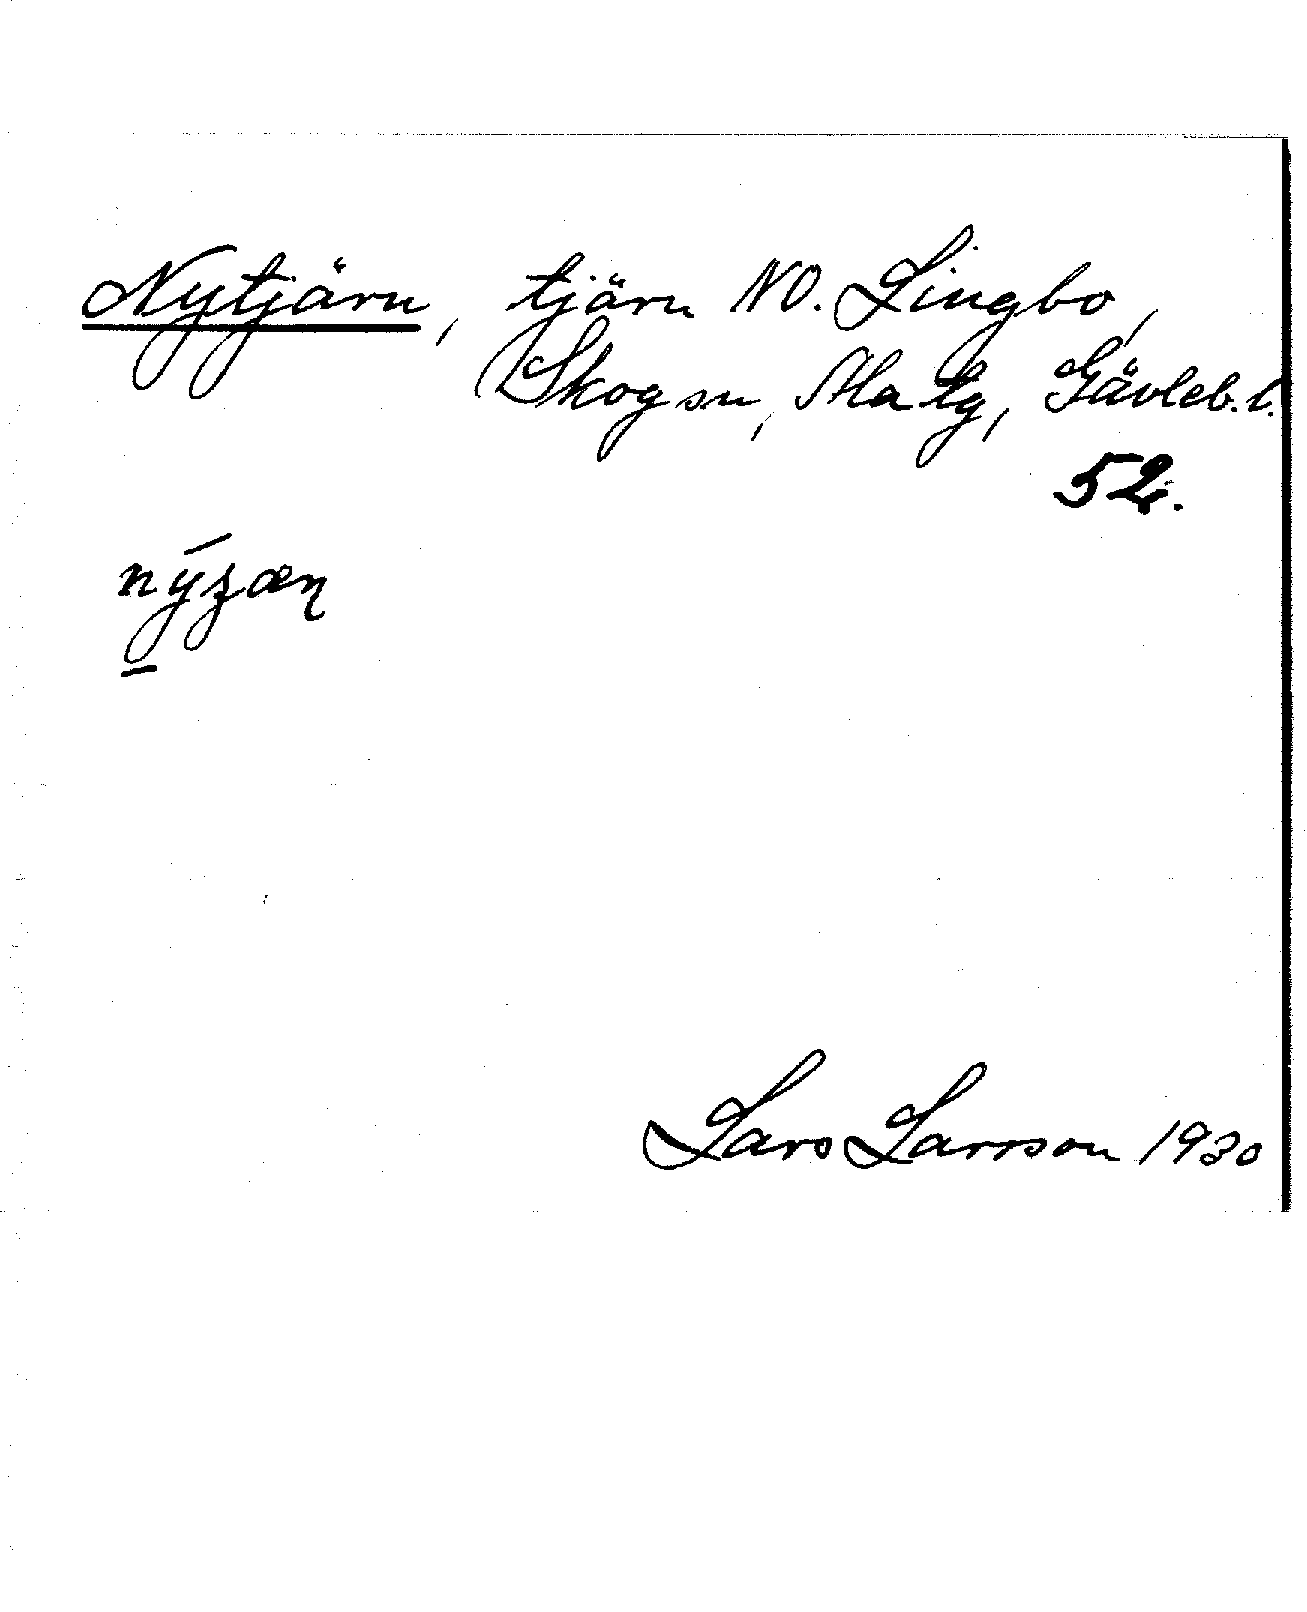 Nytjärn, tjärn NO. Lingbo,
Skogsn, Ala tg, Gävleb. l.
52.
Lars Larsson 1930